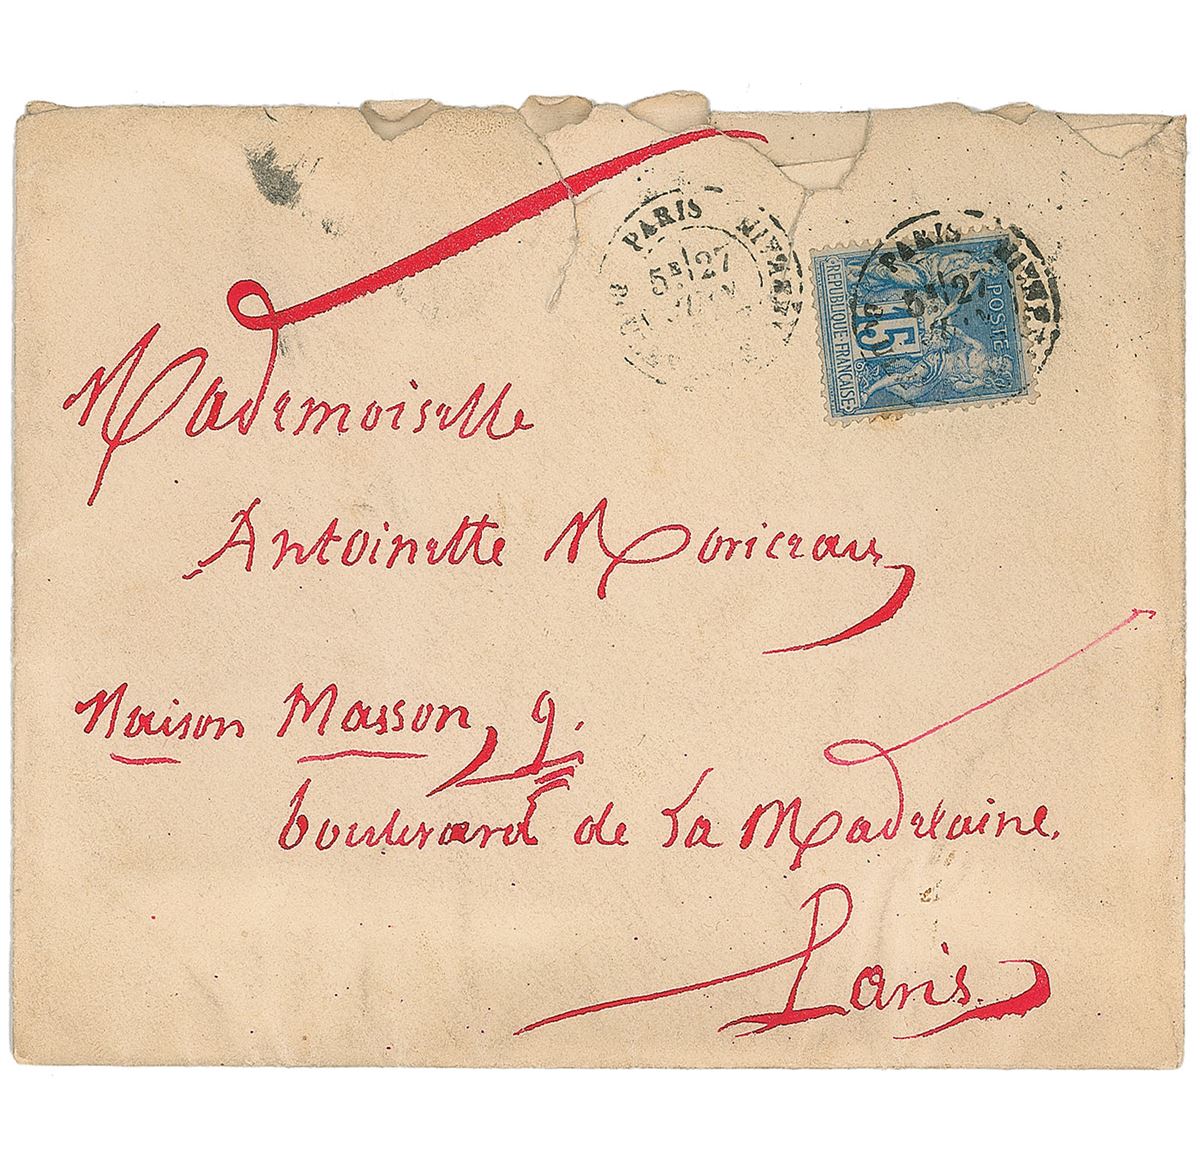 PARIS
5E 27
PARIS
5E 27
REPUBLIQUE FRANCAISE
15
POSTES
Mademoiselle
Antoinette Moriceau,
Maison Masson, 9.
boulevard de la Madelaine.
Paris.